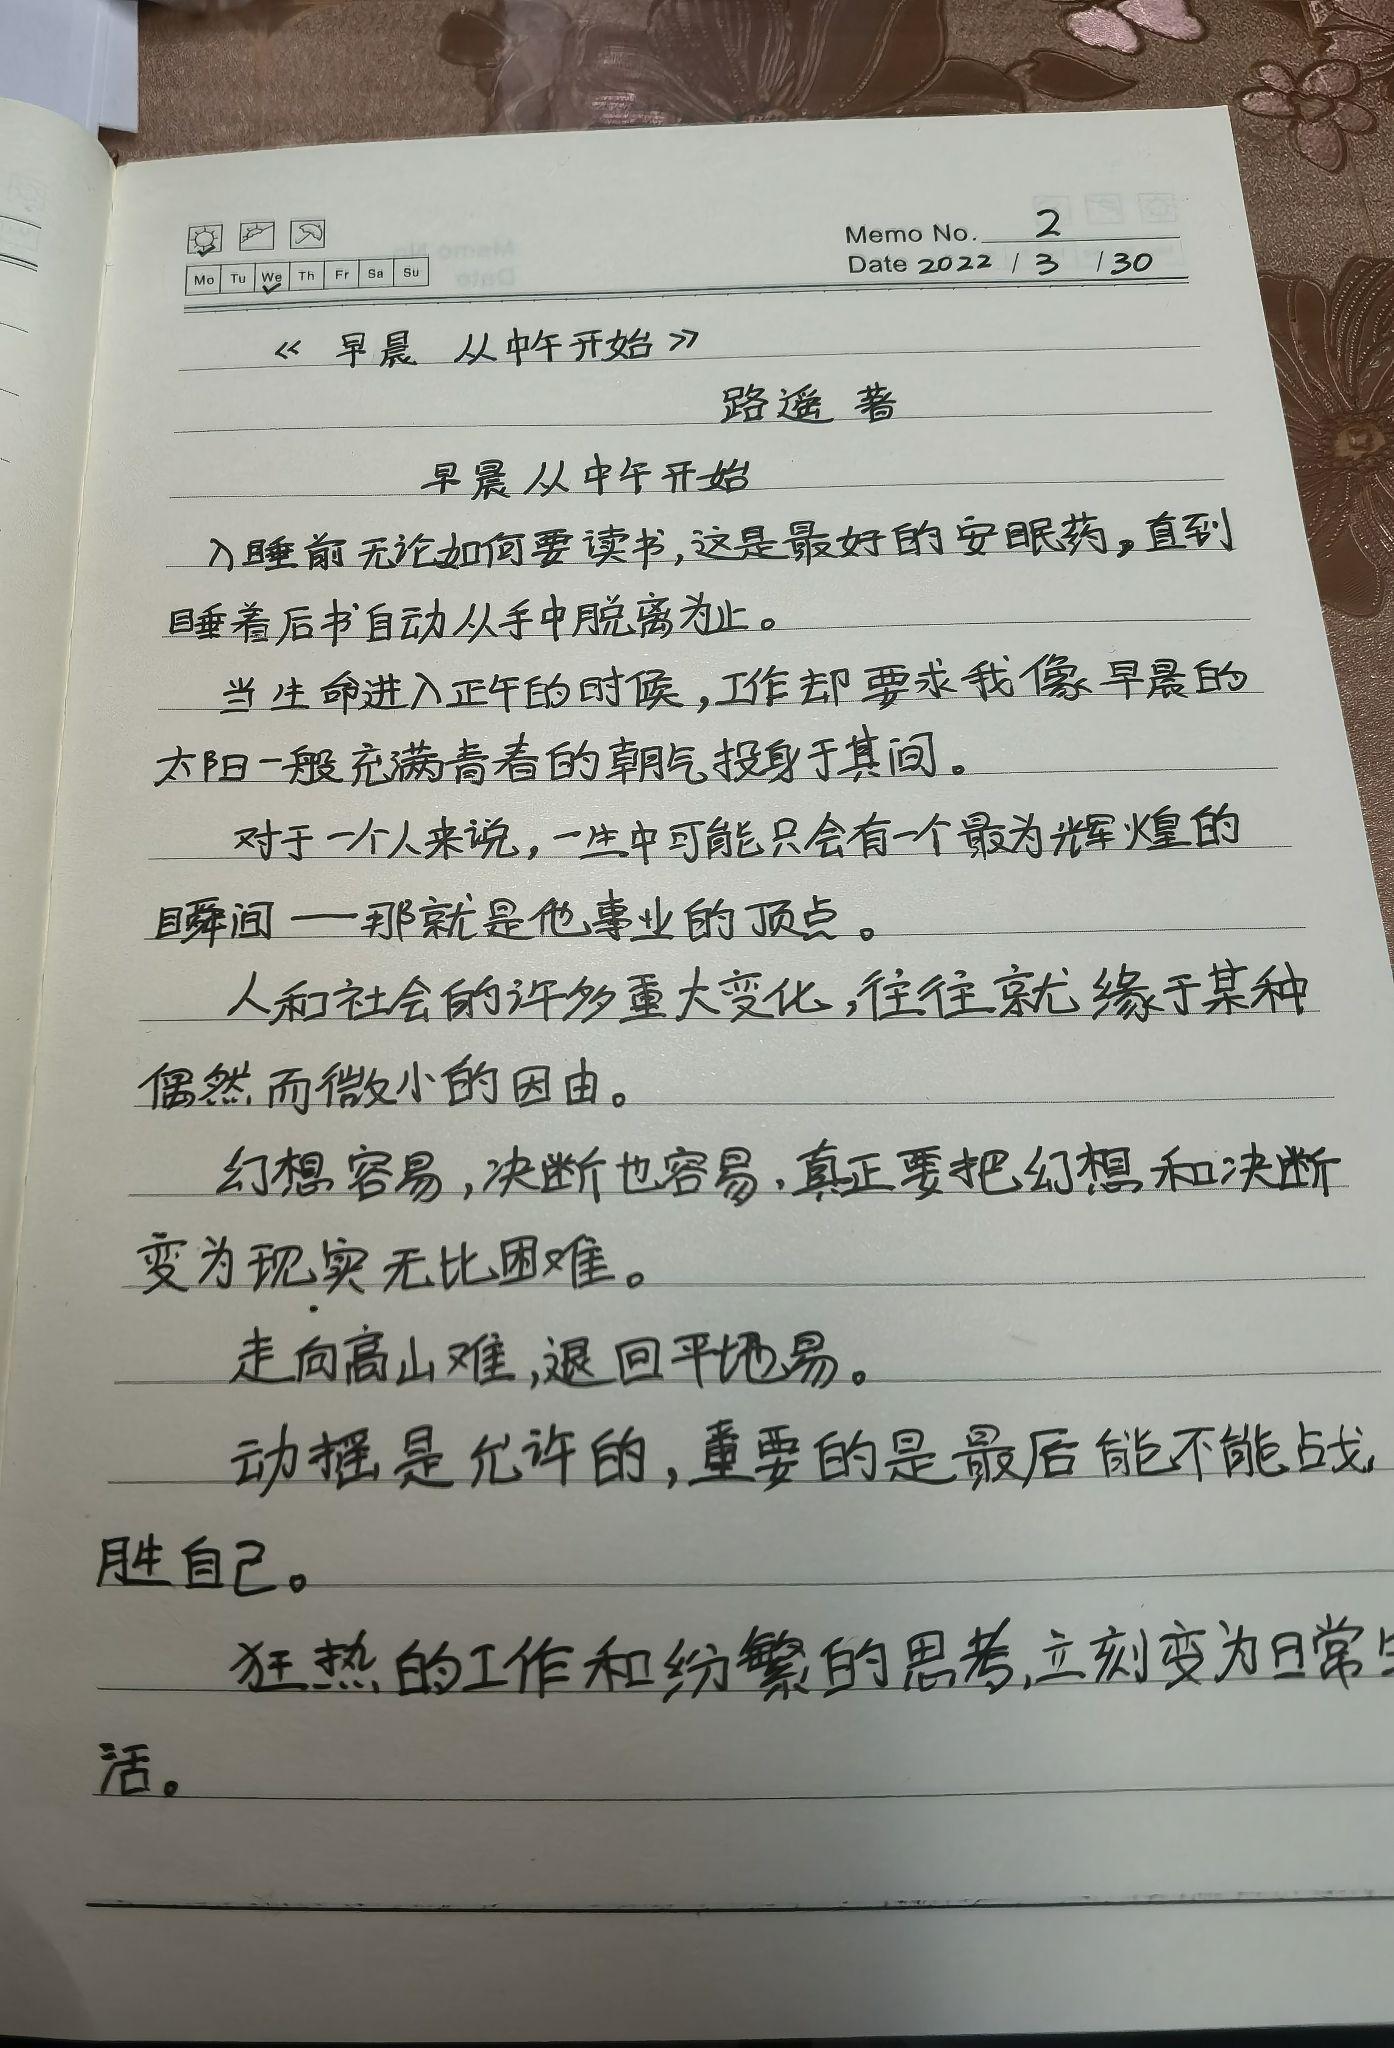 Memo No. 2
Mo Tu We Th Fr Sa Su
Date 2022 / 3 / 30
《早晨 从中午开始》
路遥 著
早晨从中午开始
入睡前无论如何要读书,这是最好的安眠药,直到
睡着后书自动从手中脱离为止。
当生命进入正午的时候,工作却要求我像早晨的
太阳一般充满青春的朝气投身于其间。
对于一个人来说,一生中可能只会有一个最为辉煌的
瞬间——那就是他事业的顶点。
人和社会的许多重大变化,往往就缘于某种
偶然而微小的因由。
幻想容易,决断也容易,真正要把幻想和决断
变为现实无比困难。
走向高山难,退回平地易。
动摇是允许的,重要的是最后能不能战
胜自己。
狂热的工作和纷繁的思考,立刻变为日常生
活。